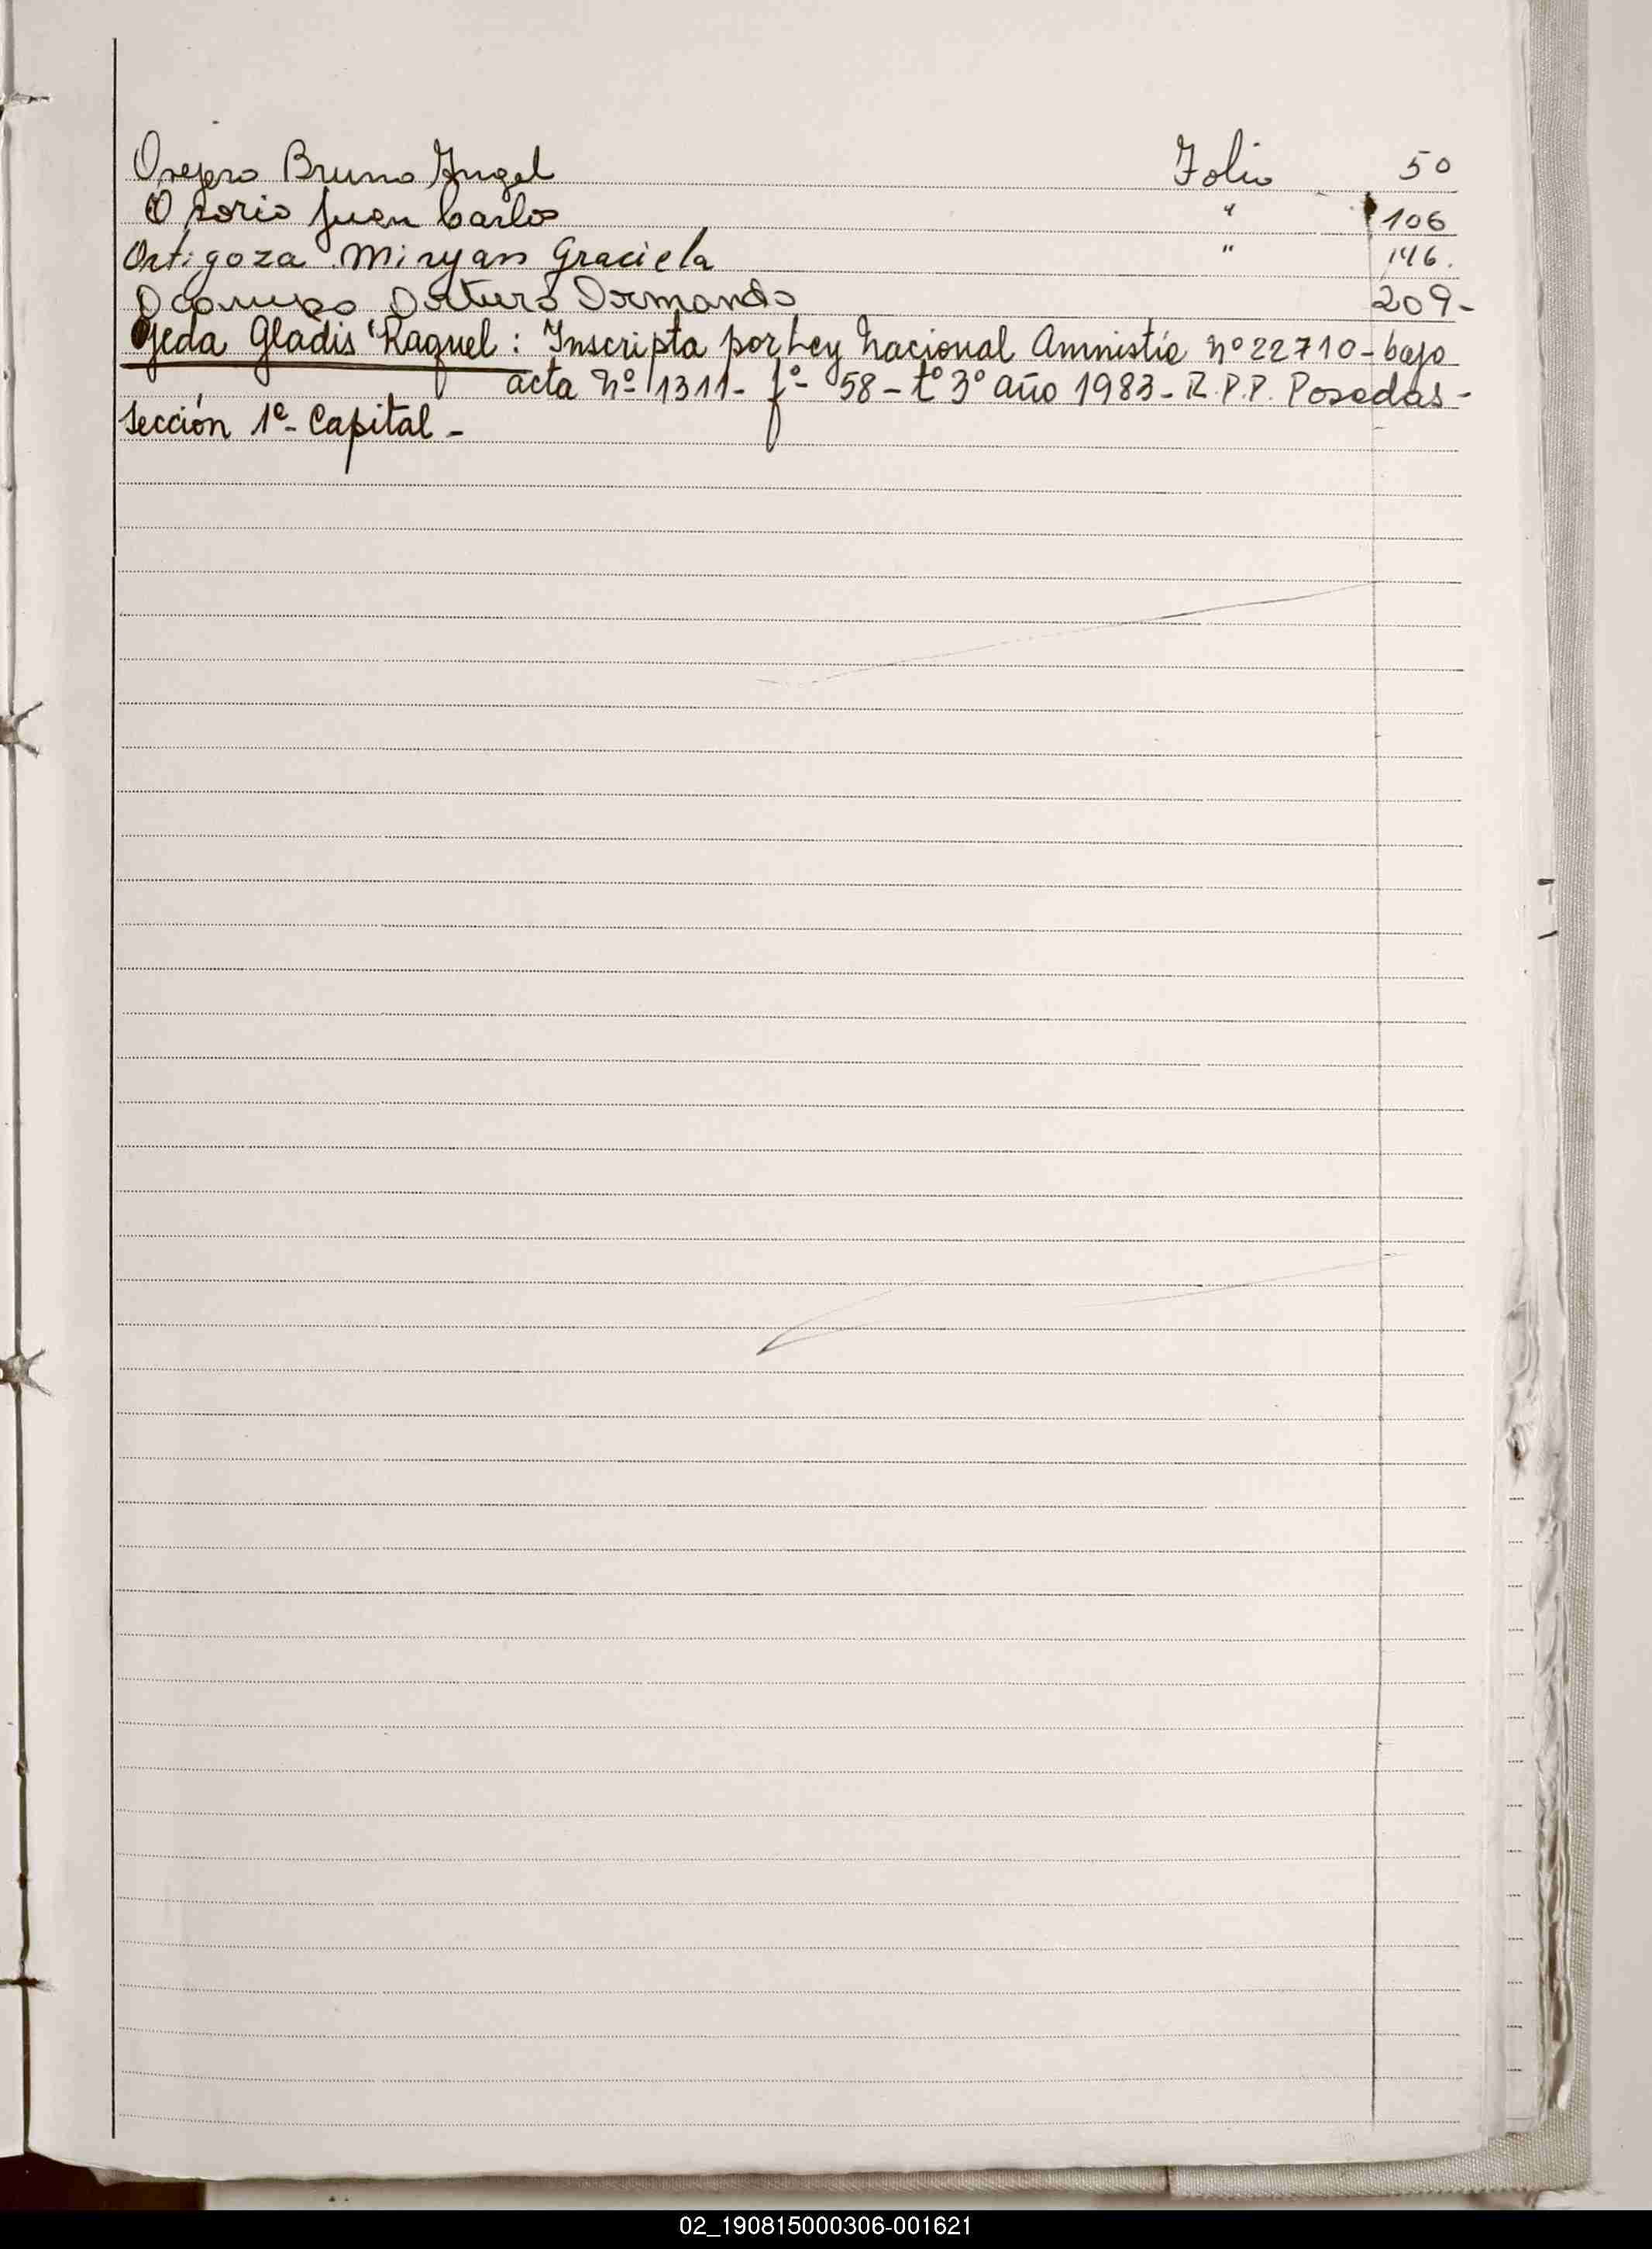 Bruno Angel Folio 50
Osorio Juan Carlos " 106
Ortigoza Miryan Graciela " 146.
Ocampo Arturo Armando 209-
Ojeda Gladis Raquel: Inscripta por Ley Nacional Amnistía nº 22710 - bajo
acta nº 1311- fº- 58 - tº 3º año 1983 - R.P.P. Posadas -
Sección 1ª- Capital -
02_190815000306-001621